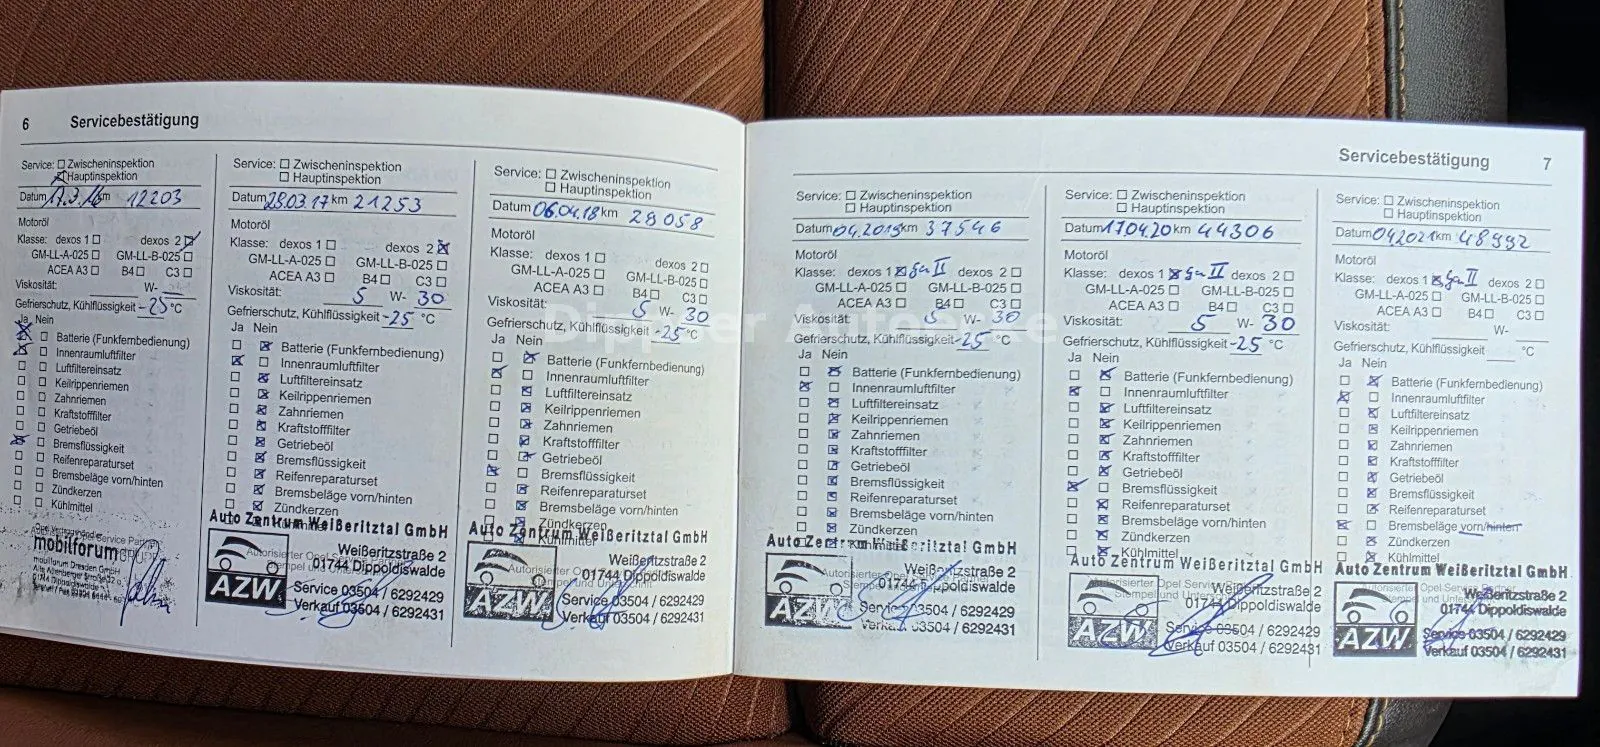 6 Servicebestätigung
Service: Zwischeninspektion
Hauptinspektion
Datum 17.3.16 km 12203
Motoröl
Klasse: dexos 1 dexos 2
GM-LL-A-025 GM-LL-B-025
ACEA A3 B4 C3
Viskosität: W-
Gefrierschutz, Kühlflüssigkeit -25 °C
Ja Nein
Batterie (Funkfernbedienung)
Innenraumluftfilter
Luftfiltereinsatz
Keilrippenriemen
Zahnriemen
Kraftstofffilter
Getriebeöl
Bremsflüssigkeit
Reifenreparaturset
Bremsbeläge vorn/hinten
Zündkerzen
Kühlmittel
mobilforum
mobilforum Dresden GmbH
Service: Zwischeninspektion
Hauptinspektion
Datum 28.03.17 km 21253
Motoröl
Klasse: dexos 1 dexos 2
GM-LL-A-025 GM-LL-B-025
ACEA A3 B4 C3
Viskosität: 5 W- 30
Gefrierschutz, Kühlflüssigkeit -25 °C
Ja Nein
Batterie (Funkfernbedienung)
Innenraumluftfilter
Luftfiltereinsatz
Keilrippenriemen
Zahnriemen
Kraftstofffilter
Getriebeöl
Bremsflüssigkeit
Reifenreparaturset
Bremsbeläge vorn/hinten
Zündkerzen
Auto Zentrum Weißeritztal GmbH
Weißeritzstraße 2
01744 Dippoldiswalde
AZW
Service 03504 / 6292429
Verkauf 03504 / 6292431
Service: Zwischeninspektion
Hauptinspektion
Datum 06.04.18 km 29058
Motoröl
Klasse: dexos 1 dexos 2
GM-LL-A-025 GM-LL-B-025
ACEA A3 B4 C3
Viskosität: 5 W- 30
Gefrierschutz, Kühlflüssigkeit -25 °C
Ja Nein
Batterie (Funkfernbedienung)
Innenraumluftfilter
Luftfiltereinsatz
Keilrippenriemen
Zahnriemen
Kraftstofffilter
Getriebeöl
Bremsflüssigkeit
Reifenreparaturset
Bremsbeläge vorn/hinten
Zündkerzen
Kühlmittel
Auto Zentrum Weißeritztal GmbH
Weißeritzstraße 2
01744 Dippoldiswalde
AZW
Service 03504 / 6292429
Verkauf 03504 / 6292431
Servicebestätigung 7
Service: Zwischeninspektion
Hauptinspektion
Datum 04.2019 km 37546
Motoröl
Klasse: dexos 1 Gen II dexos 2
GM-LL-A-025 GM-LL-B-025
ACEA A3 B4 C3
Viskosität: 5 W- 30
Gefrierschutz, Kühlflüssigkeit -25 °C
Ja Nein
Batterie (Funkfernbedienung)
Innenraumluftfilter
Luftfiltereinsatz
Keilrippenriemen
Zahnriemen
Kraftstofffilter
Getriebeöl
Bremsflüssigkeit
Reifenreparaturset
Bremsbeläge vorn/hinten
Zündkerzen
Auto Zentrum Weißeritztal GmbH
Weißeritzstraße 2
01744 Dippoldiswalde
AZW
Service 03504 / 6292429
Verkauf 03504 / 6292431
Service: Zwischeninspektion
Hauptinspektion
Datum 17.04.20 km 44306
Motoröl
Klasse: dexos 1 Gen II dexos 2
GM-LL-A-025 GM-LL-B-025
ACEA A3 B4 C3
Viskosität: 5 W- 30
Gefrierschutz, Kühlflüssigkeit -25 °C
Ja Nein
Batterie (Funkfernbedienung)
Innenraumluftfilter
Luftfiltereinsatz
Keilrippenriemen
Zahnriemen
Kraftstofffilter
Getriebeöl
Bremsflüssigkeit
Reifenreparaturset
Bremsbeläge vorn/hinten
Zündkerzen
Kühlmittel
Auto Zentrum Weißeritztal GmbH
Weißeritzstraße 2
01744 Dippoldiswalde
AZW
Service 03504 / 6292429
Verkauf 03504 / 6292431
Service: Zwischeninspektion
Hauptinspektion
Datum 04.2021 km 48992
Motoröl
Klasse: dexos 1 Gen II dexos 2
GM-LL-A-025 GM-LL-B-025
ACEA A3 B4 C3
Viskosität: W-
Gefrierschutz, Kühlflüssigkeit °C
Ja Nein
Batterie (Funkfernbedienung)
Innenraumluftfilter
Luftfiltereinsatz
Keilrippenriemen
Zahnriemen
Kraftstofffilter
Getriebeöl
Bremsflüssigkeit
Reifenreparaturset
Bremsbeläge vorn/hinten
Zündkerzen
Kühlmittel
Auto Zentrum Weißeritztal GmbH
Weißeritzstraße 2
01744 Dippoldiswalde
AZW
Service 03504 / 6292429
Verkauf 03504 / 6292431